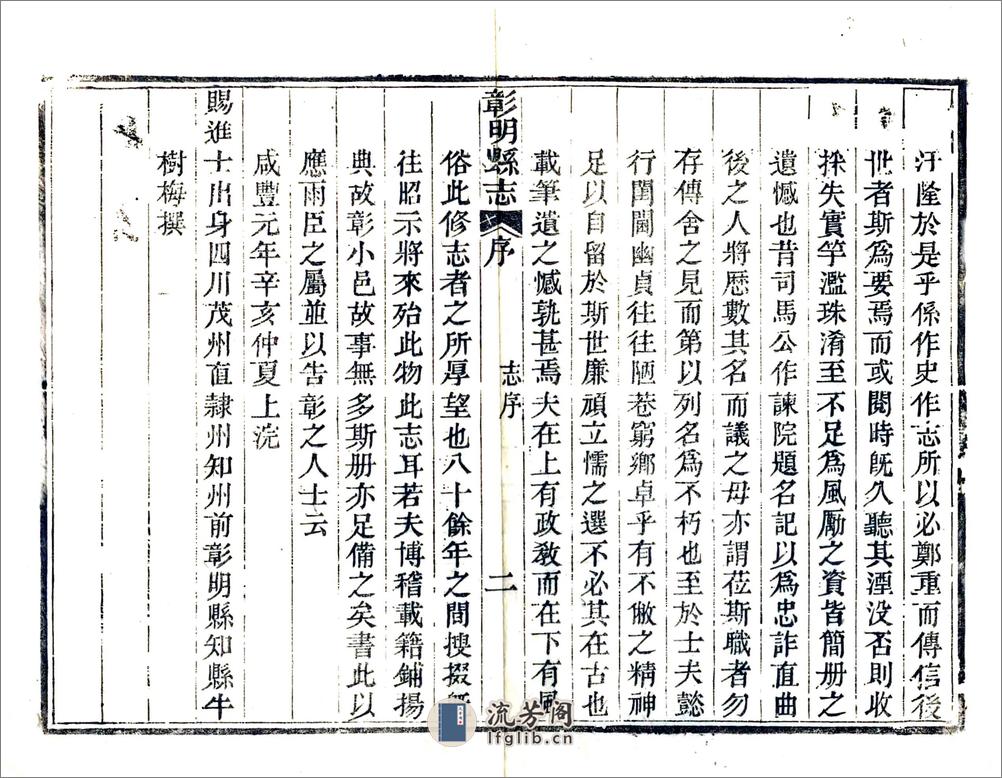 汙隆於是乎係作史作志所以必鄭重而傳信後
世者斯爲要焉而或閱時旣久聽其湮没否則收
採失實竽濫珠淆至不足爲風勵之資皆簡册之
遺憾也昔司馬公作諫院題名記以爲忠詐直曲
後之人將歷數其名而議之毋亦謂莅斯職者勿
存傳舍之見而第以列名爲不朽也至於士夫懿
行閨閫幽貞往往陋巷窮鄉卓乎有不敝之精神
足以自留於斯世廉頑立懦之選不必其在古也
載筆遺之憾孰甚焉夫在上有政敎而在下有風
彰明縣志 序 志序 二
俗此修志者之所厚望也八十餘年之間搜掇
往昭示將來殆此物此志耳若夫博稽載籍鋪揚
典故彰小邑故事無多斯册亦足備之矣書此以
應雨臣之屬並以告彰之人士云
咸豐元年辛亥仲夏上浣
賜進士出身四川茂州直隸州知州前彰明縣知縣牛
樹梅撰
流芳阁
lfglib.cn